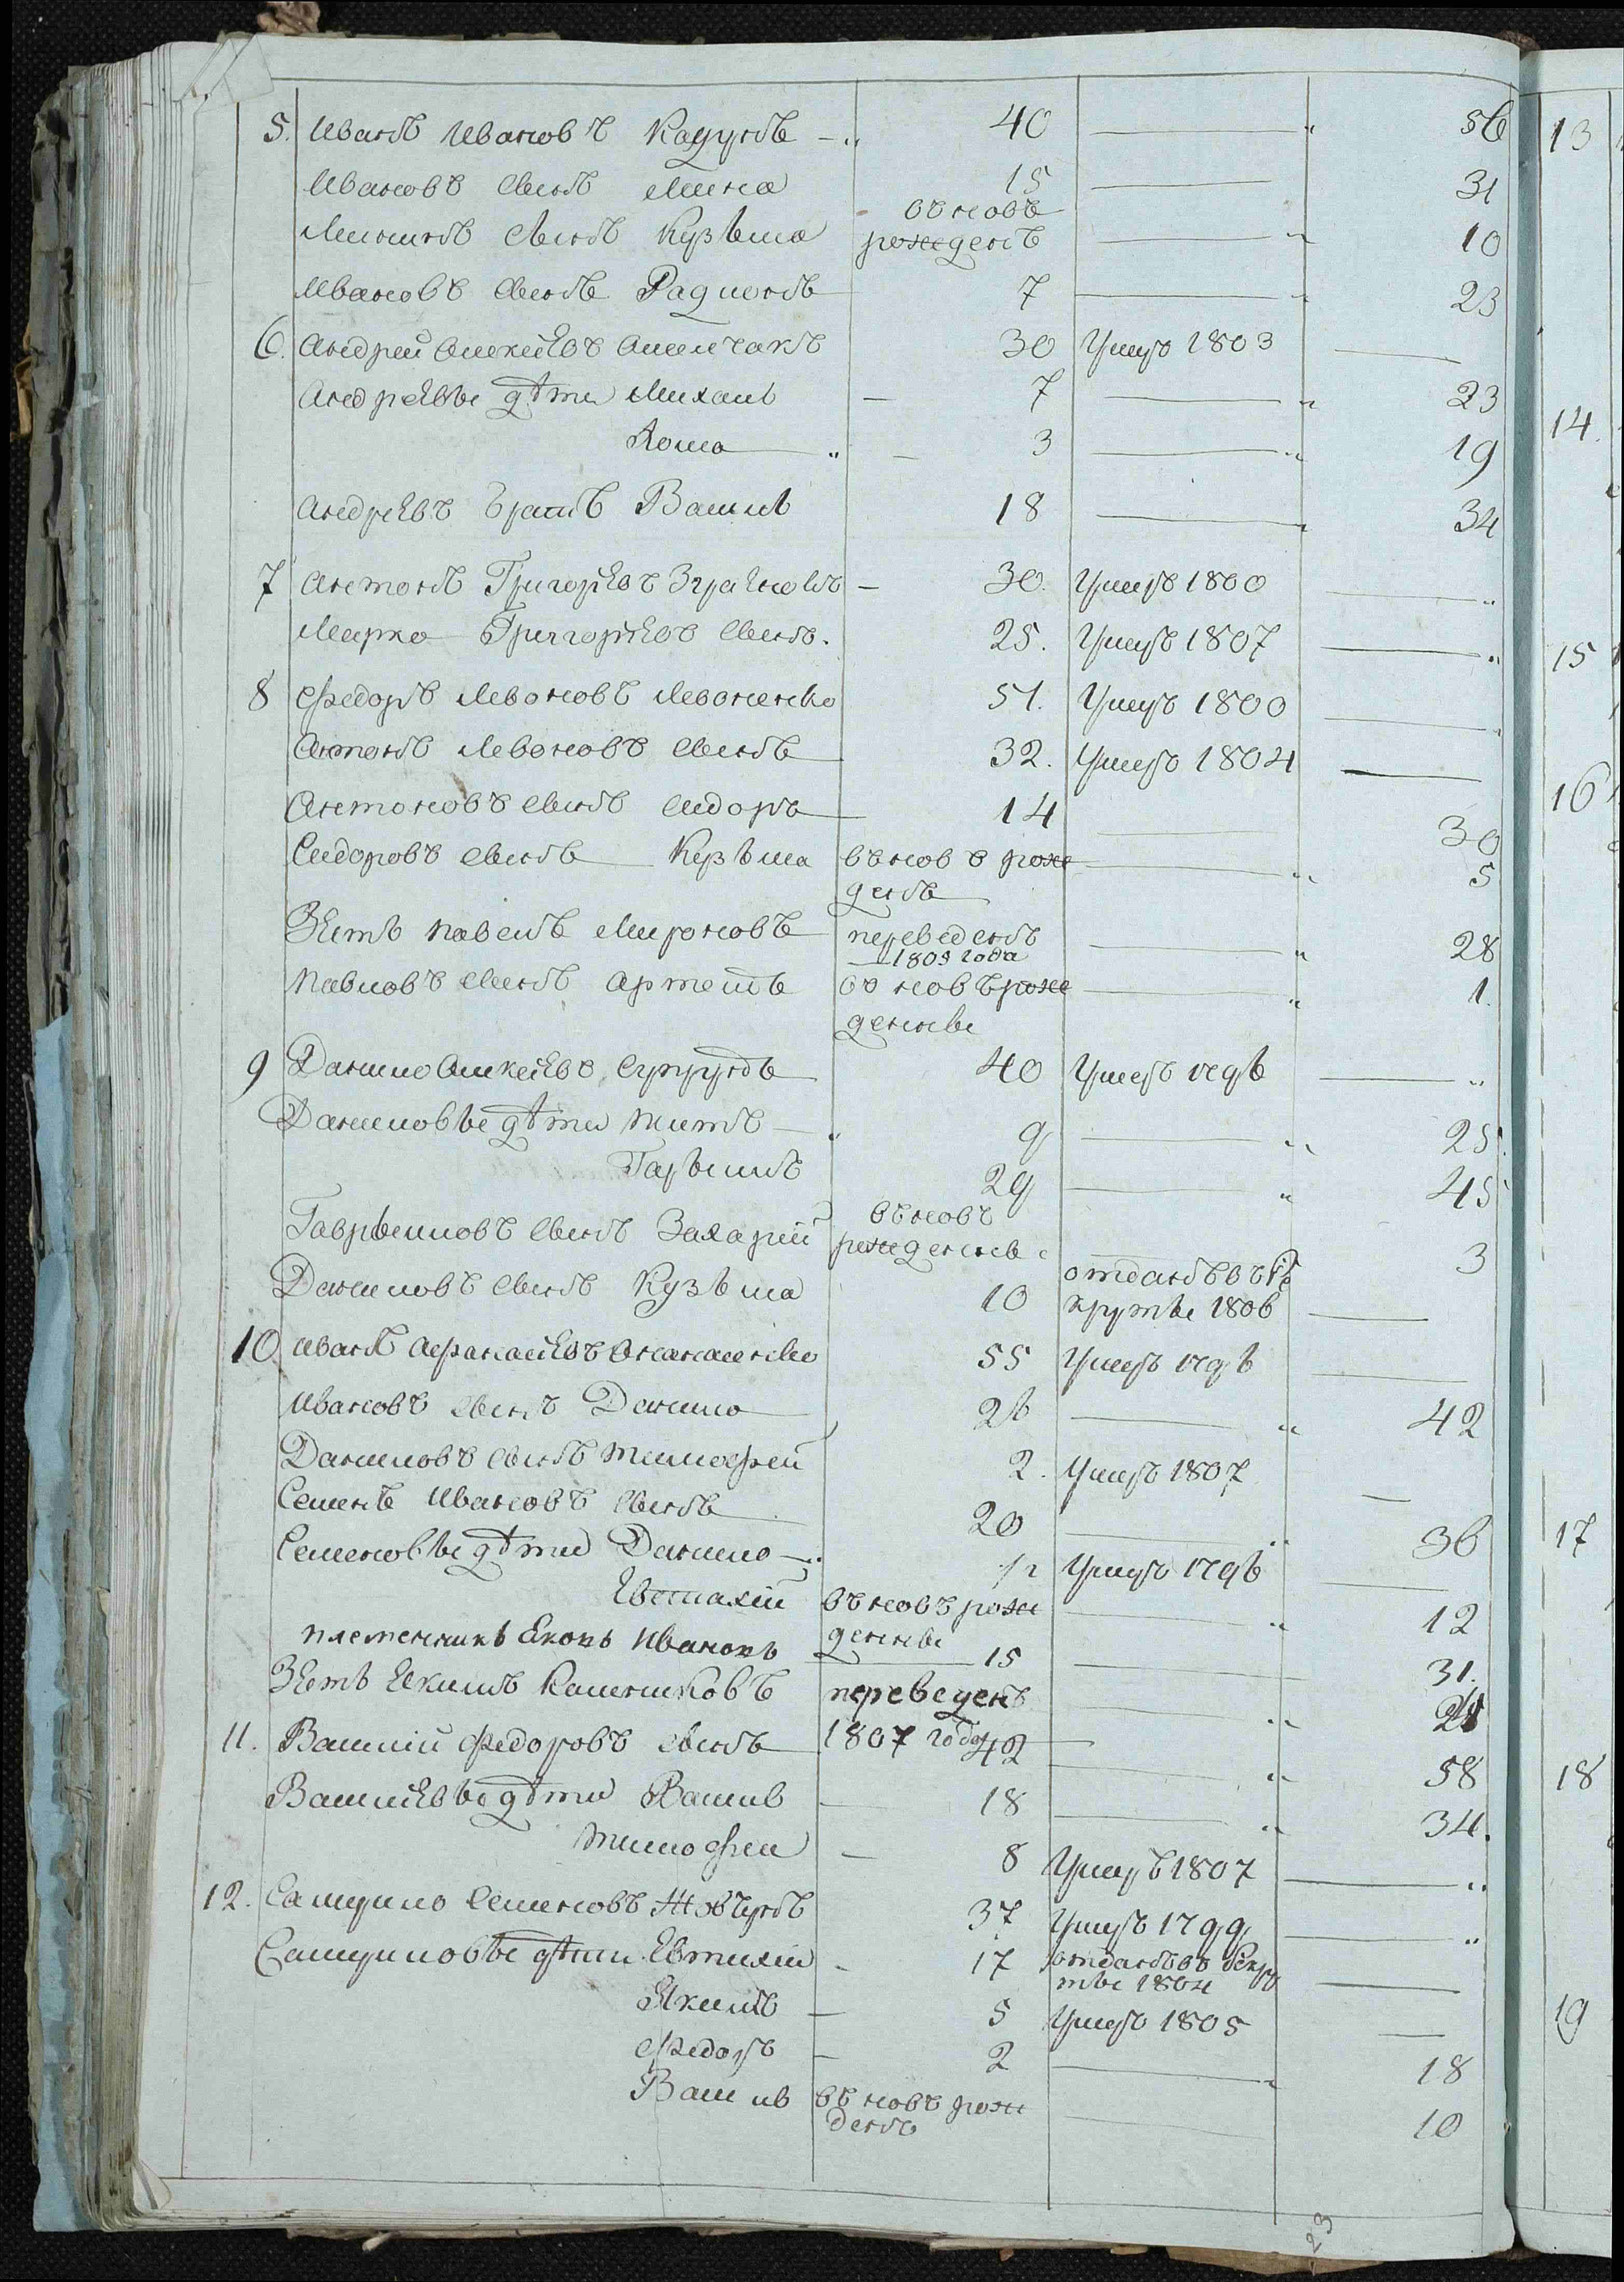 5. Иванъ Ивановъ Кадунъ 40 56
Ивановъ сынъ Мина 15 31
Мининъ сынъ Кузьма въновь рожденъ 10
Ивановъ сынъ Радионъ 7 23
6. Андрей Алексѣевъ 30 Умеръ 1803
Андреевы дѣти Михаилъ 7 23
Хома 3 19
Андреевъ братъ Василь 18 34
7 Антонъ Григорьевъ 30. Умеръ 1800
Марко Григорьевъ сынъ. 25. Умеръ 1807
8 Федоръ Левоновъ Левоненко 51. Умеръ 1800
Антонъ Левоновъ сынъ 32. Умеръ 1804
Антоновъ сынъ Сидоръ 14 30
Сидоровъ сынъ Кузьма въновь рож 5
денъ
Зять Павелъ Мироновъ переведенъ 28
1809 года
Павловъ сынъ Артемъ въ новь рож 1.
денны
9 Данило Алексѣевъ 40 Умеръ 1796
Даниловы дѣти Титъ 9 25.
Гаврыилъ 29 45
Гаврыиловъ сынъ Захарій въновь рожденны 3
Даниловъ сынъ Кузьма 10 отданъ въ ре
круты 1806
10 Иванъ Афанасьевъ 55 Умеръ 1796
Ивановъ сынъ Данило 26 42
Даниловъ сынъ Тимофей 2. Умеръ 1807
Семенъ Ивановъ сынъ 20 36
Семеновы дѣти Данило 1/2 Умеръ 1796
Евстахій въ новь рож 12
денны
племенникъ Яковъ Ивановъ 15 31.
Зять Якимъ Калениковъ переведенъ
1807 года
11. Василій Федоровъ сынъ 42 58
Васильевы дѣти Василь 18 34.
Тимофей 8 Умеръ 1807
12. Самуило Семеновъ 37 Умеръ 1799
Самуиловы дѣти Евтихій 17 отданъ въ рекру
ты 1804
Якимъ 5 Умеръ 1805
Федоръ 2 18
Василь въ новь рож 10
денъ
23
13
14.
15
16
17
18
19